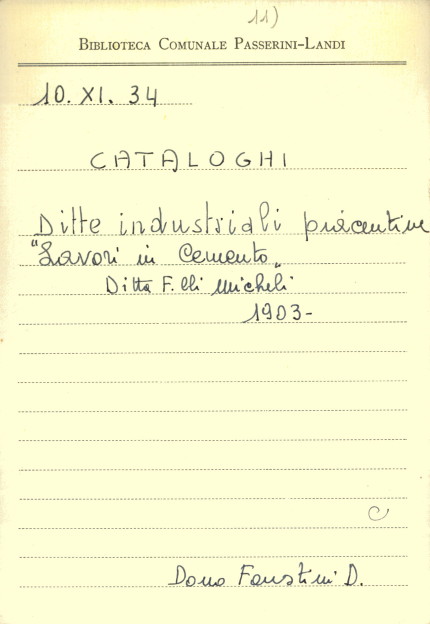 11)
BIBLIOTECA COMUNALE PASSERINI-LANDI
10. XI. 34
CATALOGHI
Ditte industriali piacentine
"Lavori in Cemento"
Ditta F.lli Micheli
1903-
C
Dono Faustini D.